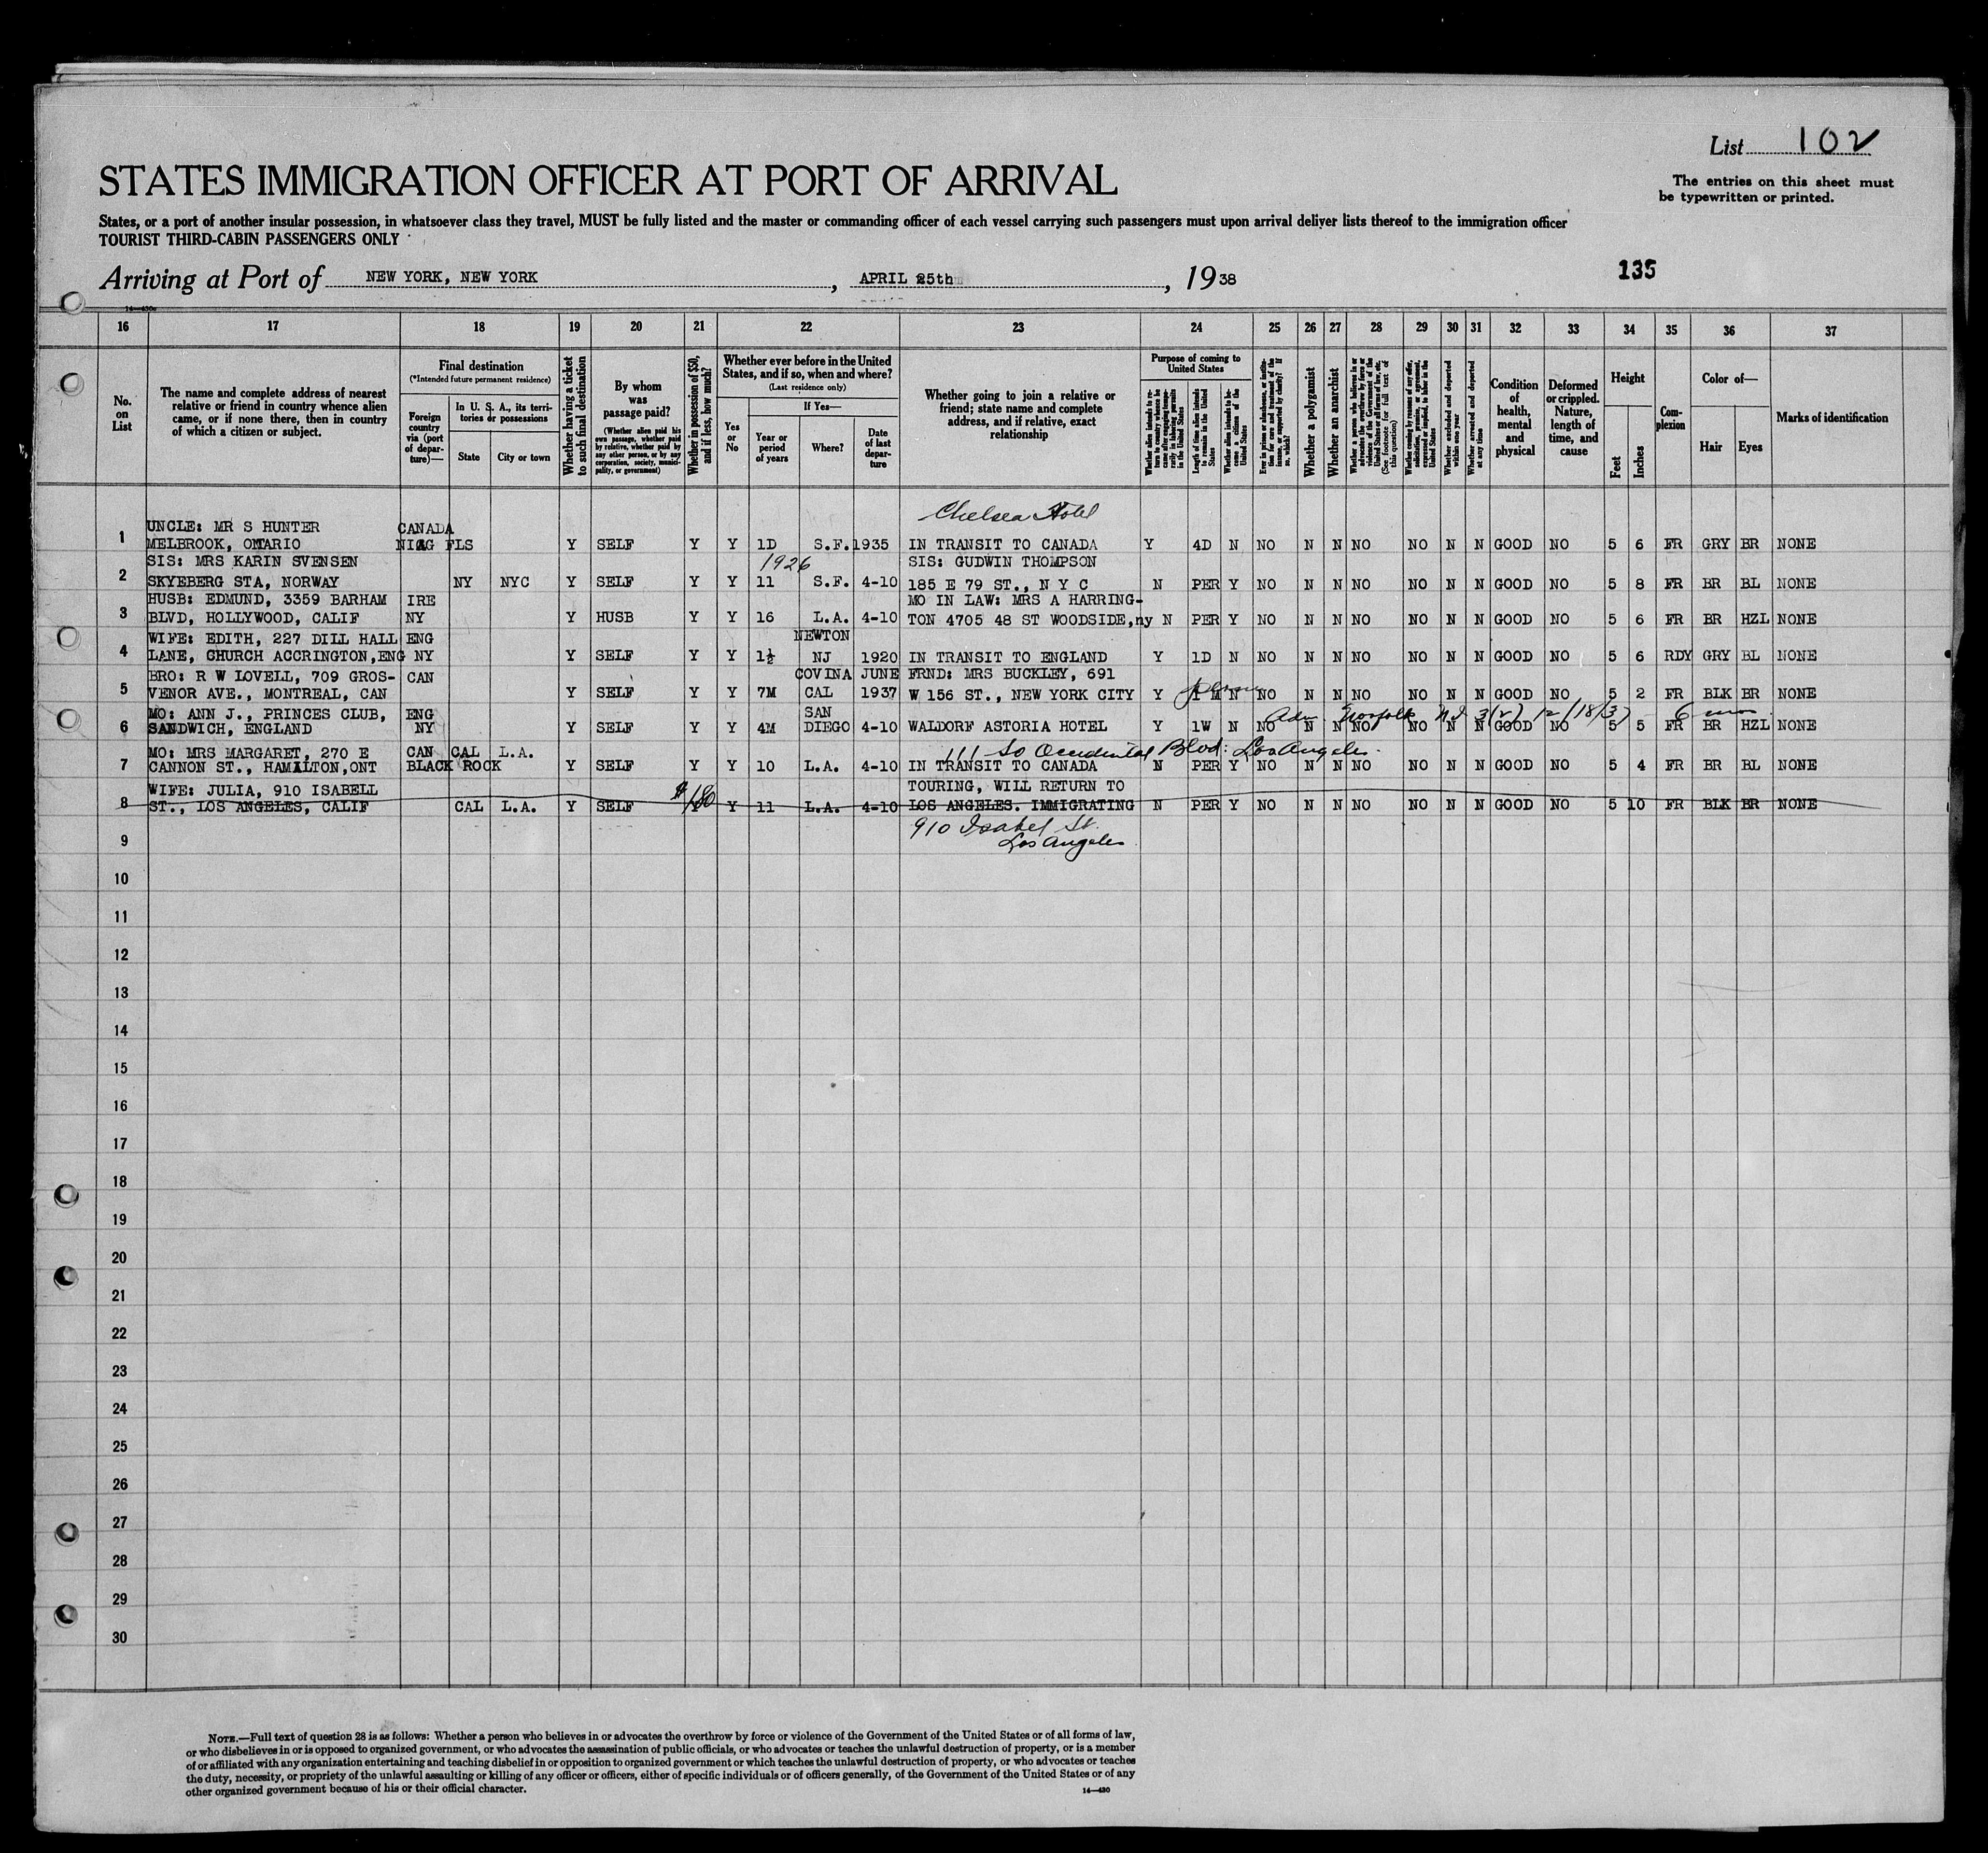 List 102
STATES IMMIGRATION OFFICER AT PORT OF ARRIVAL
The entries on this sheet must
be typewritten or printed.
States, or a port of another insular possession, in whatsoever class they travel, MUST be fully listed and the master or commanding officer of each vessel carrying such passengers must upon arrival deliver lists thereof to the immigration officer
TOURIST THIRD-CABIN PASSENGERS ONLY
Arriving at Port of NEW YORK, NEW YORK, APRIL 25th, 1938
135
16 17 18 19 20 21 22 23 24 25 26 27 28 29 30 31 32 33 34 35 36 37
No. on List
The name and complete address of nearest
relative or friend in country whence alien
came, or if none there, then in country
of which a citizen or subject.
Final destination
(*Intended future permanent residence)
Foreign country via (port of departure)—
In U. S. A., its territories or possessions
State
City or town
Whether having a ticket to such final destination
By whom was passage paid?
(Whether alien paid his own passage, whether paid by relative, whether paid by any other person, or by any corporation, society, municipality, or government)
Whether in possession of $50, and if less, how much?
Whether ever before in the United
States, and if so, when and where?
(Last residence only)
Yes or No
If Yes—
Year or period of years
Where?
Date of last departure
Whether going to join a relative or
friend; state name and complete
address, and if relative, exact
relationship
Purpose of coming to United States
Length of time alien intends to remain in the United States
Whether alien intends to become a citizen of the United States
Whether a polygamist
Whether an anarchist
Whether excluded and deported within one year
Whether arrested and deported at any time
Condition of health, mental and physical
Deformed or crippled. Nature, length of time, and cause
Height
Feet
Inches
Complexion
Color of—
Hair
Eyes
Marks of identification
Chelsea Hotel
UNCLE: MR S HUNTER CANADA
1 MELBROOK, ONTARIO NIAG FLS Y SELF Y Y 1D S.F. 1935 IN TRANSIT TO CANADA Y 4D N NO N N NO NO N N GOOD NO 5 6 FR GRY BR NONE
SIS: MRS KARIN SVENSEN 1926 SIS: GUDWIN THOMPSON
2 SKYEBERG STA, NORWAY NY NYC Y SELF Y Y 11 S.F. 4-10 185 E 79 ST., N Y C N PER Y NO N N NO NO N N GOOD NO 5 8 FR BR BL NONE
HUSB: EDMUND, 3359 BARHAM IRE MO IN LAW: MRS A HARRING-
3 BLVD, HOLLYWOOD, CALIF NY Y HUSB Y Y 16 L.A. 4-10 TON 4705 48 ST WOODSIDE, ny N PER Y NO N N NO NO N N GOOD NO 5 6 FR BR HZL NONE
WIFE: EDITH, 227 DILL HALL ENG NEWTON
4 LANE, CHURCH ACCRINGTON, ENG NY Y SELF Y Y 1½ NJ 1920 IN TRANSIT TO ENGLAND Y 1D N NO N N NO NO N N GOOD NO 5 6 RDY GRY BL NONE
BRO: R W LOVELL, 709 GROS- CAN COVINA JUNE FRND: MRS BUCKLEY, 691
5 VENOR AVE., MONTREAL, CAN Y SELF Y Y 7M CAL 1937 W 156 ST., NEW YORK CITY Y 1 M N NO N N NO NO N N GOOD NO 5 2 FR BLK BR NONE
MO: ANN J., PRINCES CLUB, ENG SAN Adm. Norfolk 3(2) 12/18/37 6 mos
6 SANDWICH, ENGLAND NY Y SELF Y Y 4M DIEGO 4-10 WALDORF ASTORIA HOTEL Y 1W N NO N N NO NO N N GOOD NO 5 5 FR BR HZL NONE
MO: MRS MARGARET, 270 E CAN CAL L.A. 111 So Occidental Blvd: Los Angeles.
7 CANNON ST., HAMILTON, ONT BLACK ROCK Y SELF Y Y 10 L.A. 4-10 IN TRANSIT TO CANADA N PER Y NO N N NO NO N N GOOD NO 5 4 FR BR BL NONE
WIFE: JULIA, 910 ISABELL $180 TOURING, WILL RETURN TO
8 ST., LOS ANGELES, CALIF CAL L.A. Y SELF Y Y 11 L.A. 4-10 LOS ANGELES. IMMIGRATING N PER Y NO N N NO NO N N GOOD NO 5 10 FR BLK BR NONE
910 Isabel St.
9 Los Angeles
10
11
12
13
14
15
16
17
18
19
20
21
22
23
24
25
26
27
28
29
30
NOTE.—Full text of question 28 is as follows: Whether a person who believes in or advocates the overthrow by force or violence of the Government of the United States or of all forms of law,
or who disbelieves in or is opposed to organized government, or who advocates the assassination of public officials, or who advocates or teaches the unlawful destruction of property, or is a member
of or affiliated with any organization entertaining and teaching disbelief in or opposition to organized government or which teaches the unlawful destruction of property, or who advocates or teaches
the duty, necessity, or propriety of the unlawful assaulting or killing of any officer or officers, either of specific individuals or of officers generally, of the Government of the United States or of any
other organized government because of his or their official character.
14—430